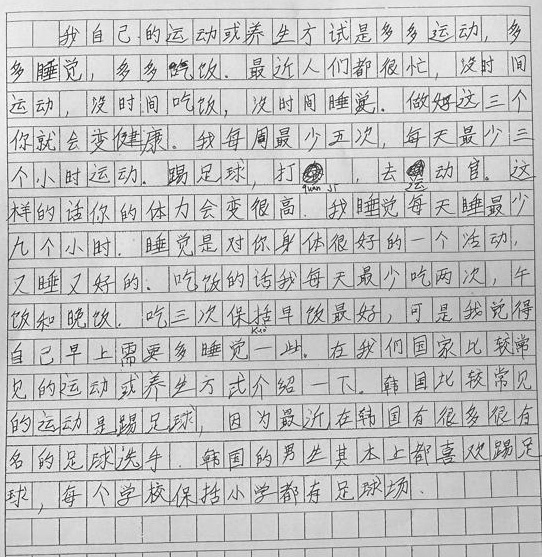 我自己的运动或养生方试是多多运动,多
多睡觉,多多吃饭.最近人们都很忙,没时间
运动,没时间吃饭,没时间睡觉.做好这三个
你就会变健康.我每周最少五次,每天最少三
个小时运动.踢足球,打 ,去 动官.这
quan ji
样的话你的体力会变很高.我睡觉每天睡最少
九个小时.睡觉是对你身体很好的一个活动,
又睡又好的.吃饭的话我每天最少吃两次,午
饭和晚饭.吃三次保括早饭最好,可是我觉得
自己早上需要多睡觉一些.在我们国家比较常
见的运动或养生方式介绍一下.韩国比较常见
的运动是踢足球,因为最近在韩国有很多很有
名的足球洗手.韩国的男生其本上都喜欢踢足
球,每个学校保括小学都有足球场.